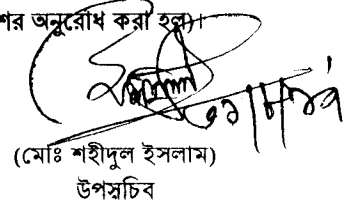 অনুরোধ করা হল)।
(মোঃ শহীদুল ইসলাম)
উপসচিব